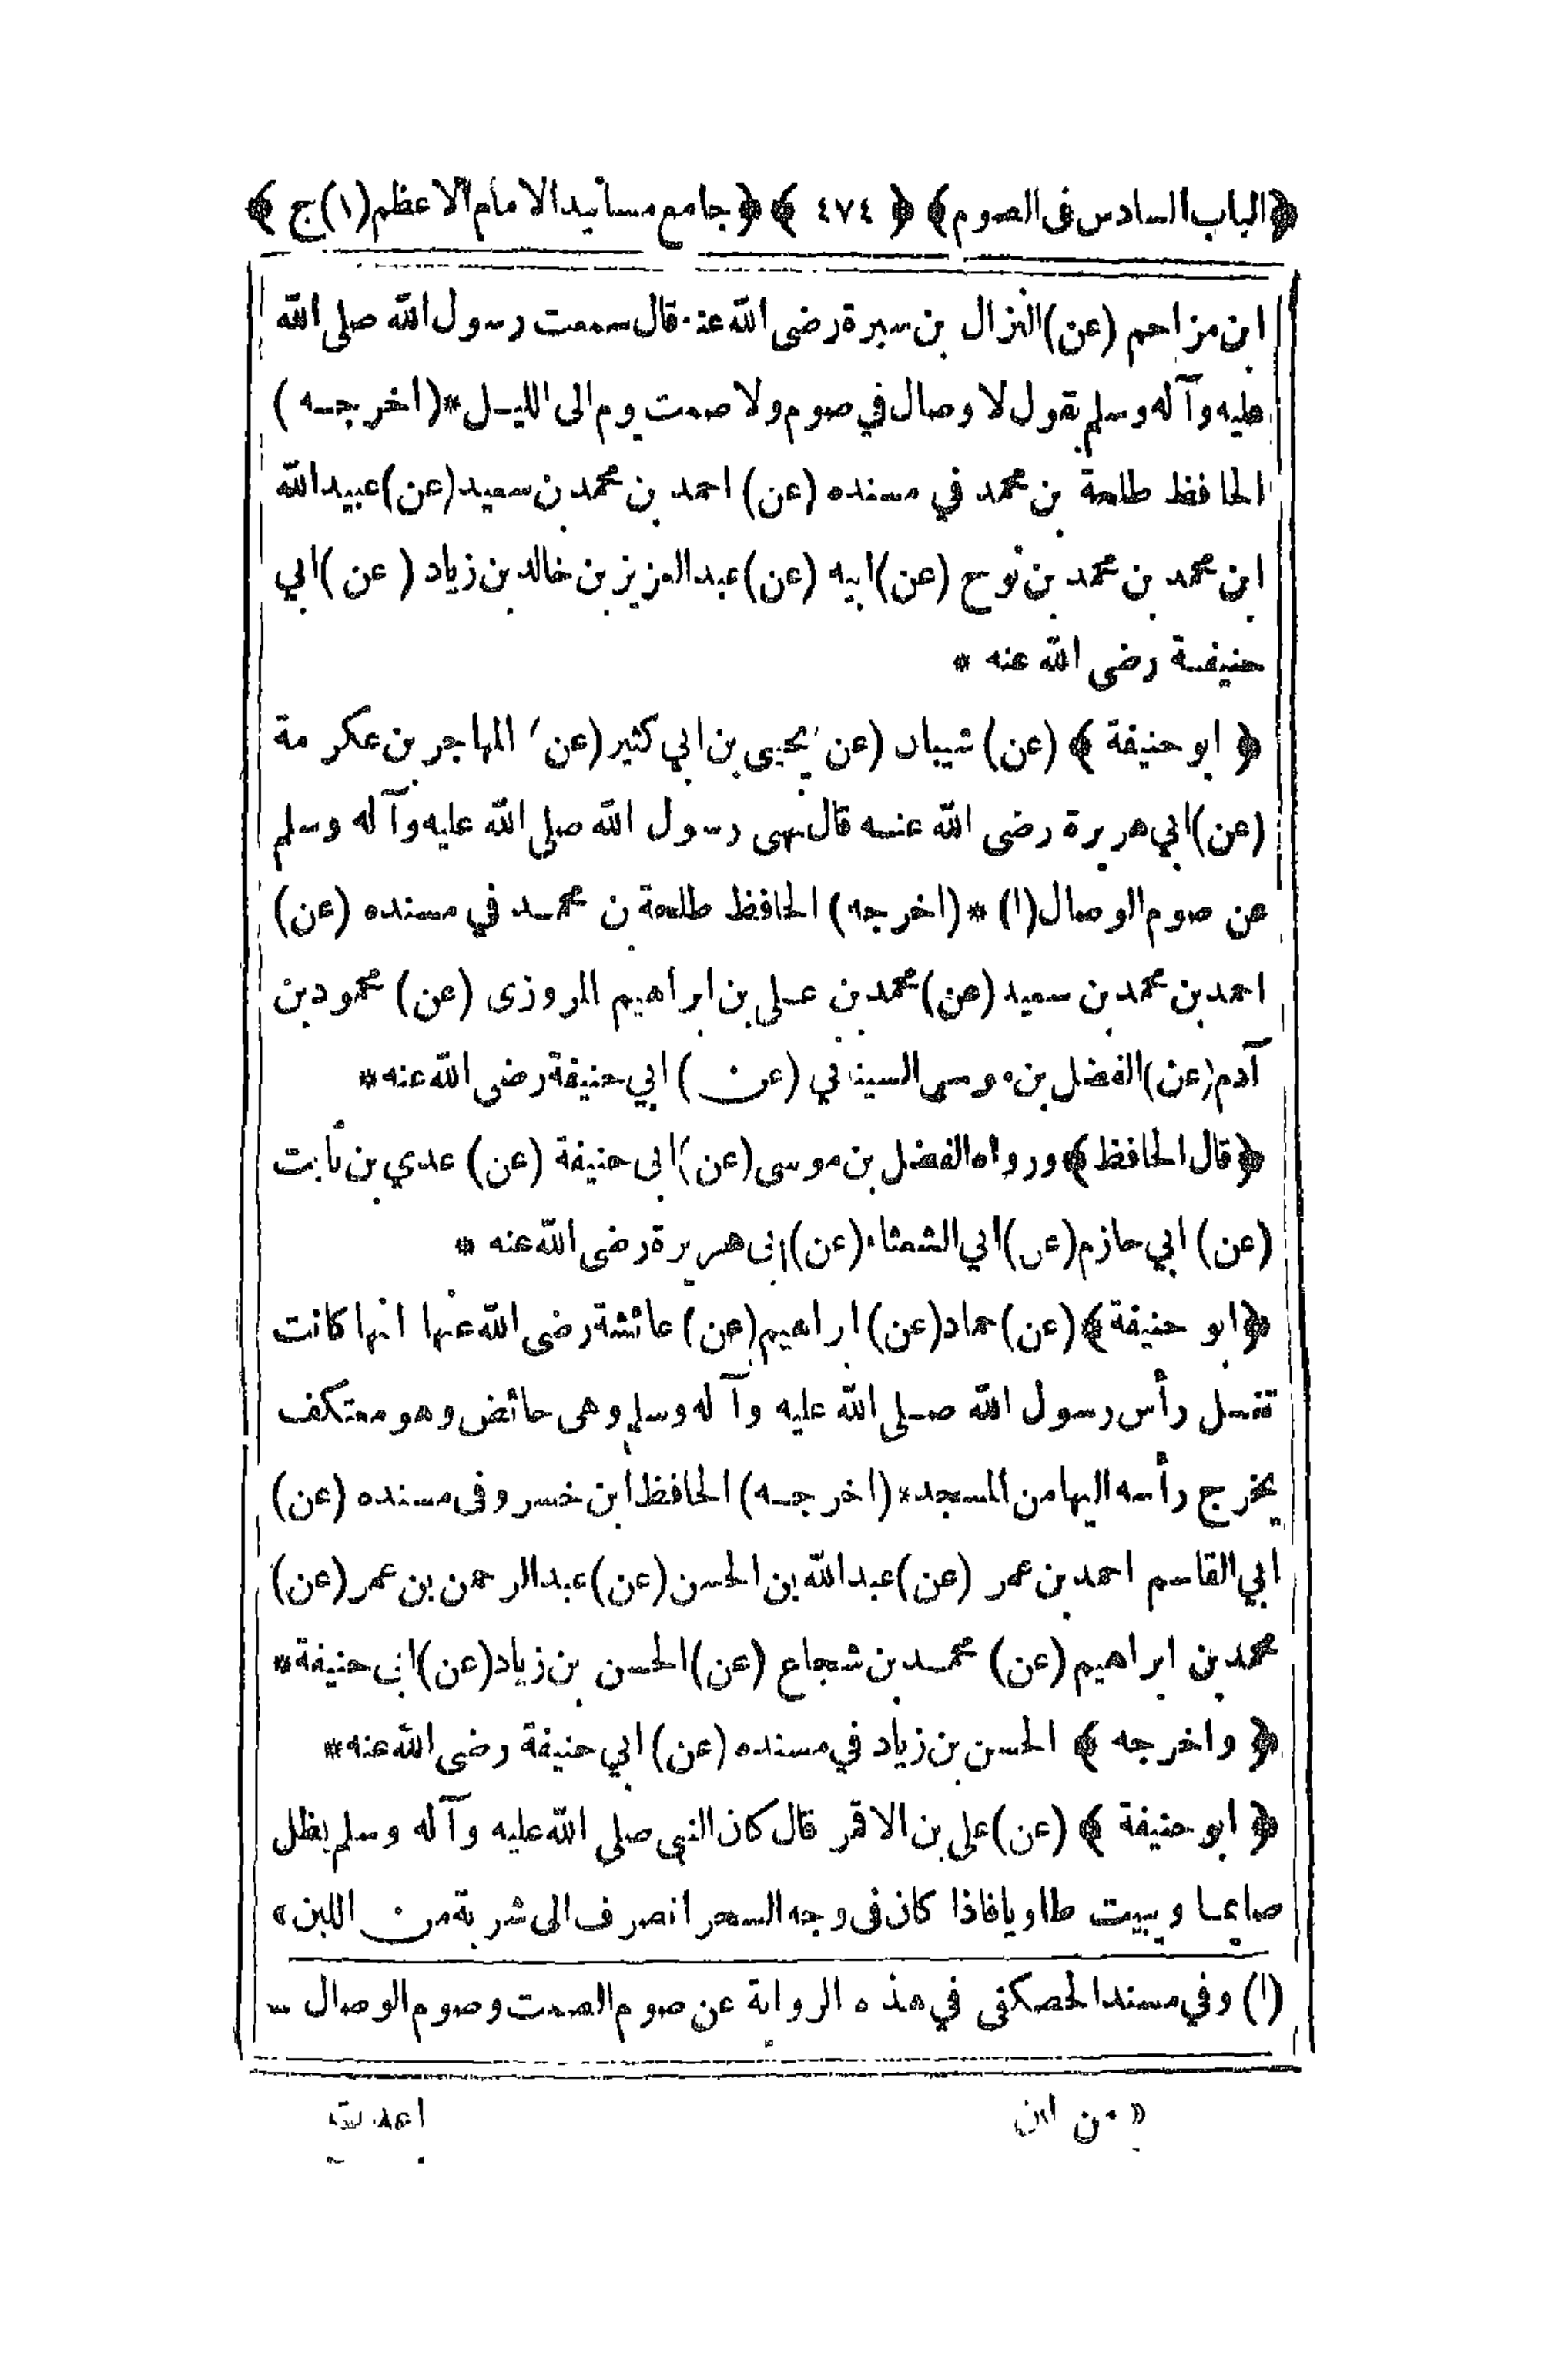 ﴿الباب السادس فى الصوم﴾ ﴿ ٤٧٤ ﴾ ﴿جامع مسانيد الامام الاعظم(١)ج ﴾
ابن مزاحم (عن)النزال بن سبرة رضى الله عنه قال سمعت رسول الله صلى الله
عليه وآله وسلم يقول لا وصال في صوم ولا صمت يوم الى الليل*(اخرجه )
الحافظ طلحة بن محمد في مسنده (عن) احمد بن محمد بن سعيد(عن)عبيد الله
ابن محمد بن محمد بن نوح (عن)ابيه (عن)عبد العزيز بن خالد بن زياد ( عن )ابي
حنيفة رضى الله عنه *
﴿ ابو حنيفة ﴾ (عن) شيبان (عن) يحيى بن ابي كثير(عن) المهاجر بن عكرمة
(عن)ابي هريرة رضى الله عنه قال نهى رسول الله صلى الله عليه وآله وسلم
عن صوم الوصال(١) *(اخرجه) الحافظ طلحة بن محمد في مسنده (عن)
احمد بن محمد بن سعيد (عن)محمد بن علي بن ابراهيم المروزى (عن) محمود بن
آدم(عن)الفضل بن موسى السيناني (عن) ابي حنيفة رضى الله عنه*
﴿قال الحافظ﴾ورواه الفضل بن موسى(عن)ابى حنيفة (عن) عدي بن ثابت
(عن) ابي حازم(عن)ابي الشعثاء(عن)ابى هريرة رضى الله عنه *
﴿ابو حنيفة﴾(عن)حماد(عن)ابراهيم(عن)عائشة رضى الله عنها انها كانت
تغسل رأس رسول الله صلى الله عليه وآله وسلم وهى حائض وهو معتكف
يخرج رأسه اليها من المسجد*(اخرجه) الحافظ ابن خسرو فى مسنده (عن)
ابي القاسم احمد بن عمر (عن)عبد الله بن الحسن(عن)عبد الرحمن بن عمر(عن)
محمد بن ابراهيم (عن) محمد بن شجاع (عن)الحسن بن زياد(عن)ابى حنيفة*
﴿ واخرجه ﴾ الحسن بن زياد في مسنده (عن)ابي حنيفة رضى الله عنه*
﴿ ابو حنيفة ﴾ (عن)علي بن الاقمر قال كان النبى صلى الله عليه وآله وسلم يظل
صايما ويبيت طاويا فاذا كان فى وجه السحر انصرف الى شربة من اللبن»
(١) وفي مسند الحصكفى في هذه الرواية عن صوم الصمت وصوم الوصال
« من لبن